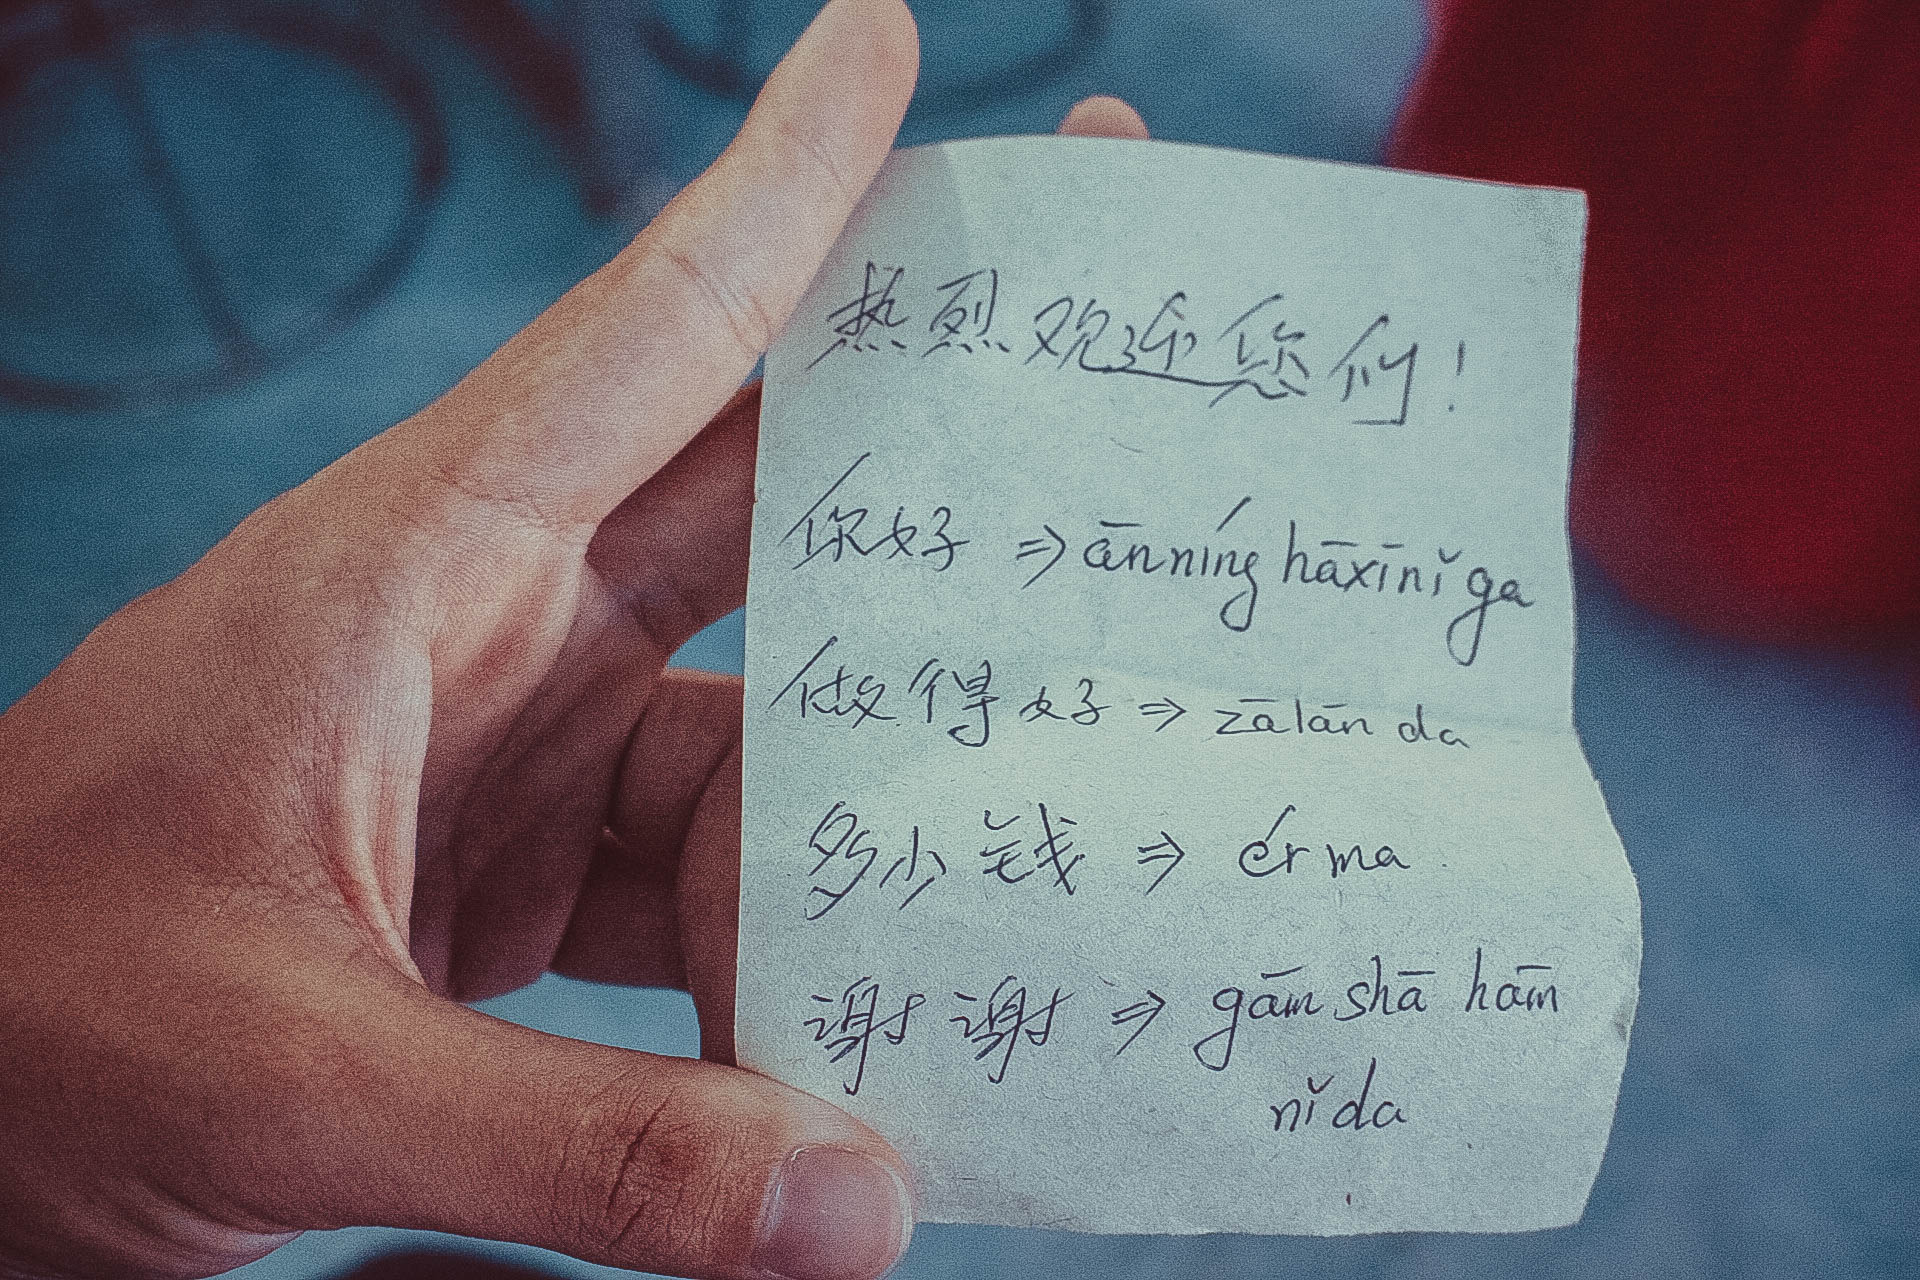 热烈欢迎您们!
你好 ⇒ ānníng hāxīnǐ ga
做得好 ⇒ zālān da
多少钱 ⇒ ér ma
谢谢 ⇒ gām shā hām
nǐ da